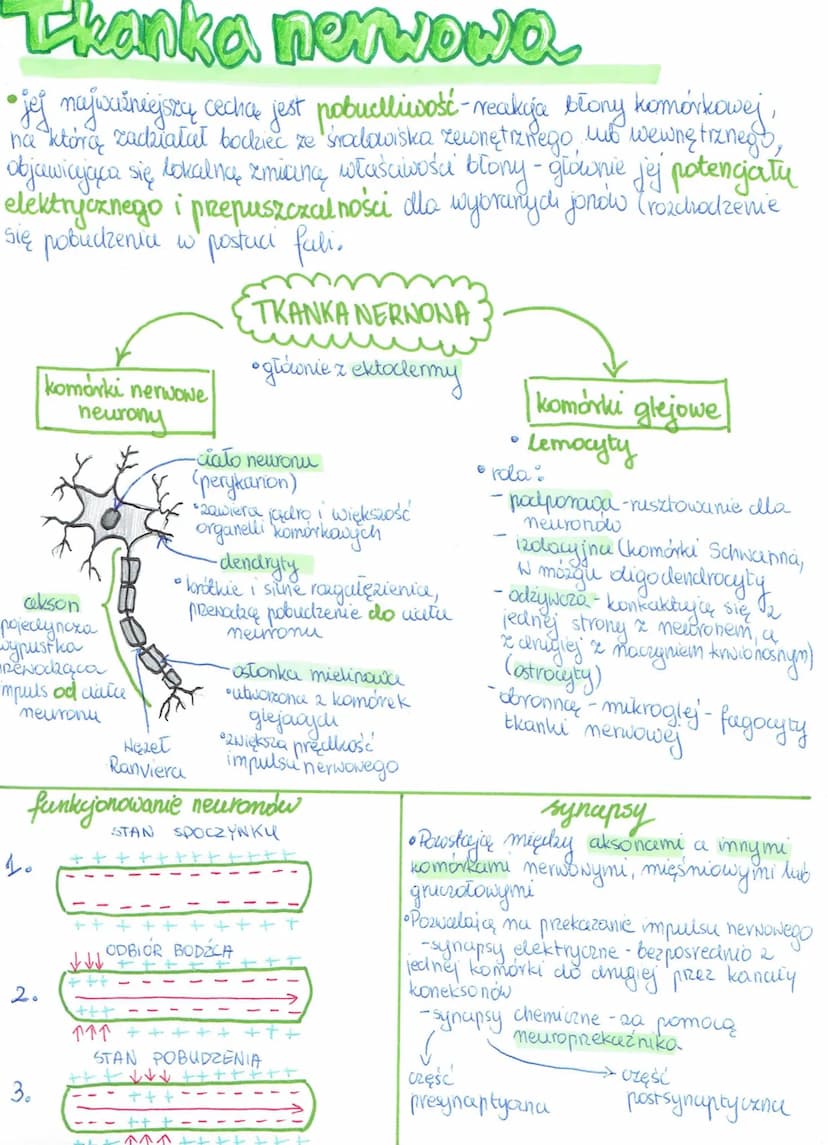 Tkanka nerwowa
• jej najważniejszą cechą jest pobudliwość - reakcja błony komórkowej,
na którą zadziałał bodziec ze środowiska zewnętrznego lub wewnętrznego,
objawiająca się lokalną zmianą właściwości błony - głównie jej potencjału
elektrycznego i przepuszczalności dla wybranych jonów (rozchodzenie
się pobudzenia w postaci fali.
TKANKA NERWONA
• głównie z ektodermy
komórki nerwowe
neurony
ciało neuronu
(perykarion)
• zawiera jądro i większość
organelli komórkowych
dendryty
• krótkie i silne rozgałęzienia,
przewodzą pobudzenie do ciała
neuronu
akson
pojedyncza
wypustka
przewodząca
impuls od ciała
neuronu
osłonka mielinowa
• utworzona z komórek
glejowych
• zwiększa prędkość
impulsu nerwowego
Węzeł
Ranviera
komórki glejowe
• Lemocyty
• rola:
- podporowa - rusztowanie dla
neuronów
- izolacyjna (komórki Schwanna,
w mózgu oligodendrocyty
- odżywcza - kontaktują się z
jednej strony z neuronem, a
z drugiej z naczyniem krwionośnym)
(astrocyty)
- obronną - mikroglej - fagocyty
tkanki nerwowej
funkcjonowanie neuronów
STAN SPOCZYNKU
1.
+ + + + + + + + + + + +
- - - - - - - - - - - -
- - - - - - - - - -
+ + + + + + + + + + +
ODBIÓR BODŹCA
2.
+ + + - - - - - - -
+++ - - - - - - -
+ + + + + + + +
STAN POBUDZENIA
3.
+ + + + + + + + +
- - - + + + - - - - -
- - - + + + - - - - -
+ + + + + + + +
synapsy
• Powstają między aksonami a innymi
komórkami nerwowymi, mięśniowymi lub
gruczołowymi
• Pozwalają na przekazanie impulsu nerwowego
- synapsy elektryczne - bezpośrednio z
jednej komórki do drugiej przez kanały
koneksonów
- synapsy chemiczne - za pomocą
neuroprzekaźnika
część
presynaptyczna
część
postsynaptyczna